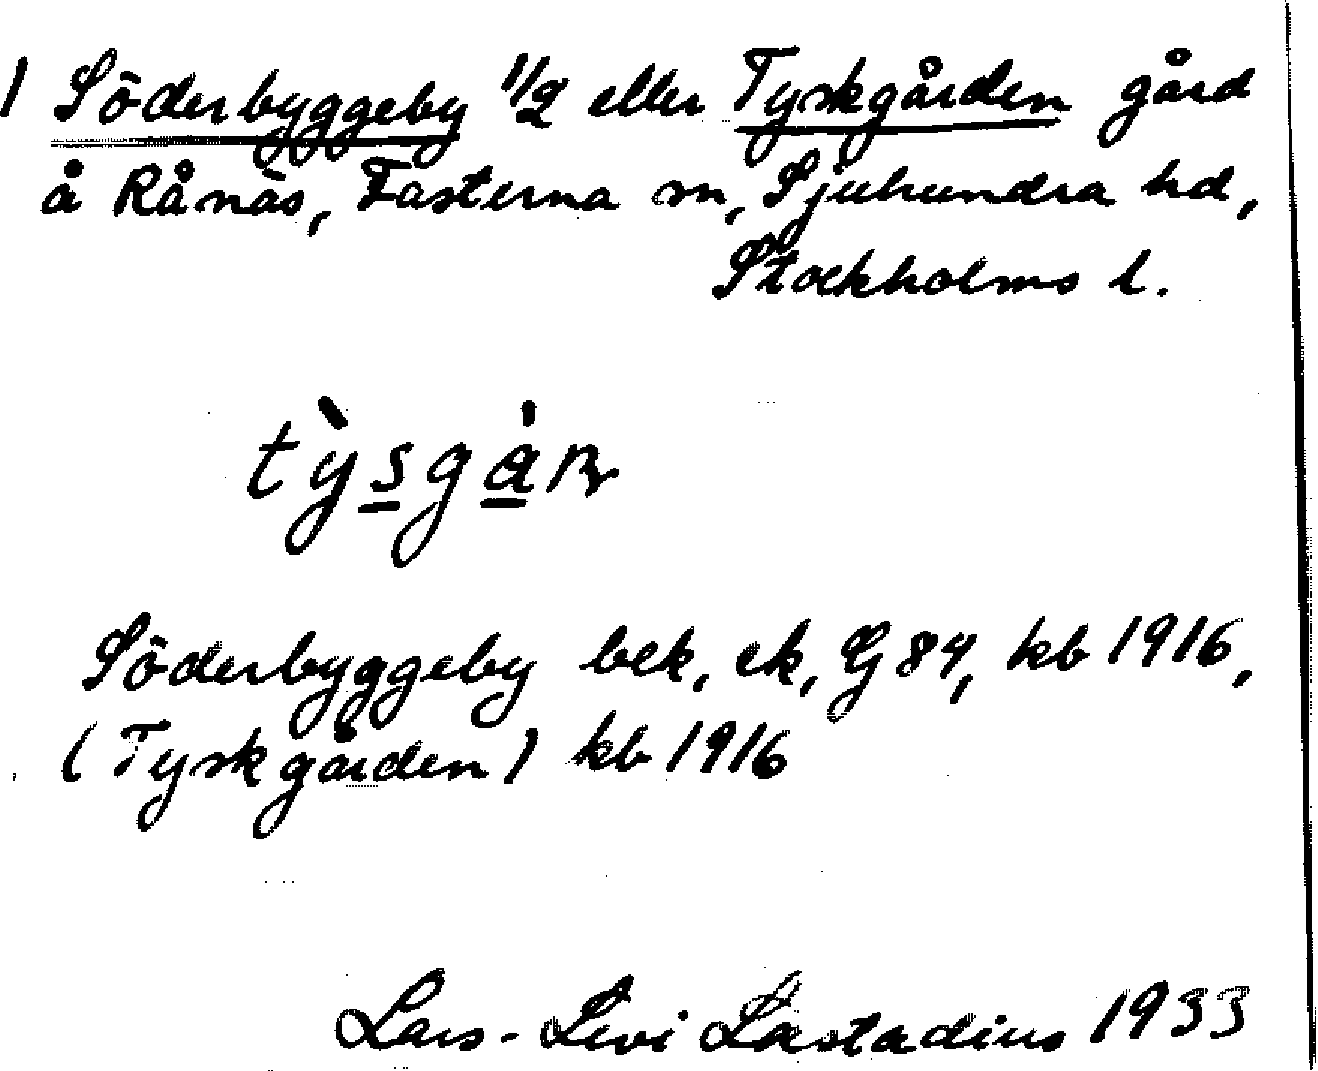 1 Söderbyggeby 1/2 eller Tyskgården gård
å Rånäs, Fasterna sn, Sjuhundra hd,
Stockholms l.
Söderbyggeby bek, ek, G 84, kb 1916,
(Tyskgården) kb 1916
Lars-Levi Læstadius 1933